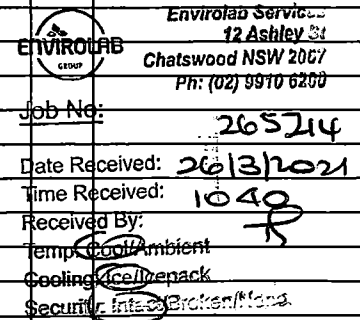 ENVIROLAB
GROUP
Envirolab Services
12 Ashley St
Chatswood NSW 2067
Ph: (02) 9910 6200
Job No:
265214
Date Received: 26/3/2021
Time Received: 1040
Received By:
Temp: Cool/Ambient
Cooling: Ice/Icepack
Security: Intact/Broken/None